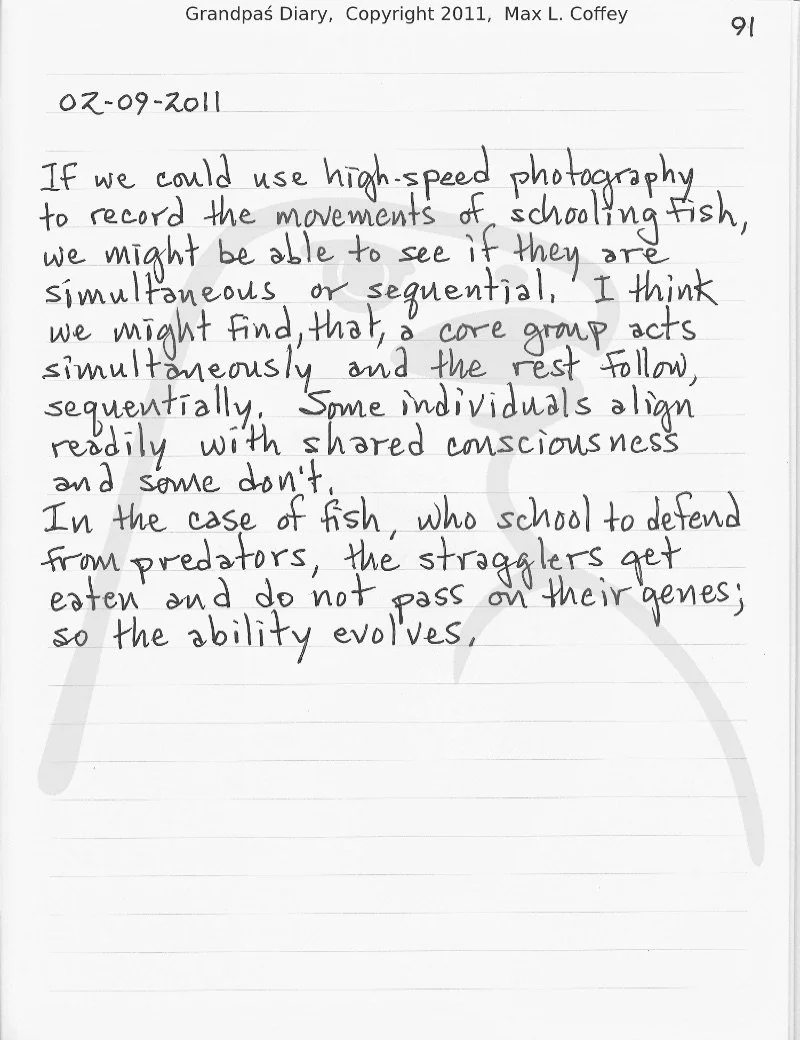 Grandpaś Diary, Copyright 2011, Max L. Coffey
91
02-09-2011
If we could use high-speed photography
to record the movements of schooling fish,
we might be able to see if they are
simultaneous or sequential. I think
we might find, that, a core group acts
simultaneously and the rest follow,
sequentially. Some individuals align
readily with shared consciousness
and some don't.
In the case of fish, who school to defend
from predators, the stragglers get
eaten and do not pass on their genes;
so the ability evolves.